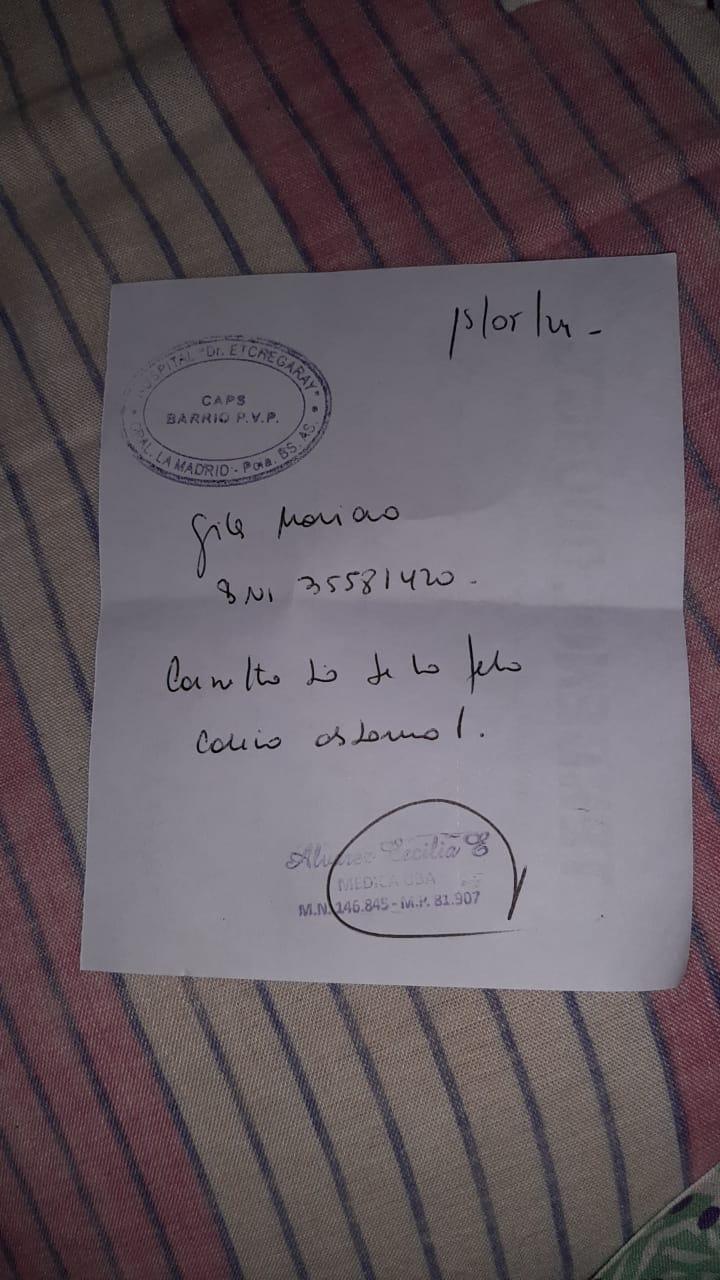 15/05/24 -
HOSPITAL "Dr. ETCHEGARAY"
CAPS
BARRIO P.V.P.
GRAL. LA MADRID - Pcia. BS. AS.
Mariano
DNI 35581420.
Consulta día de la fecha
abdominal.
Alvarez Cecilia E
MEDICA UBA
M.N. 146.845 - M.P. 81.907